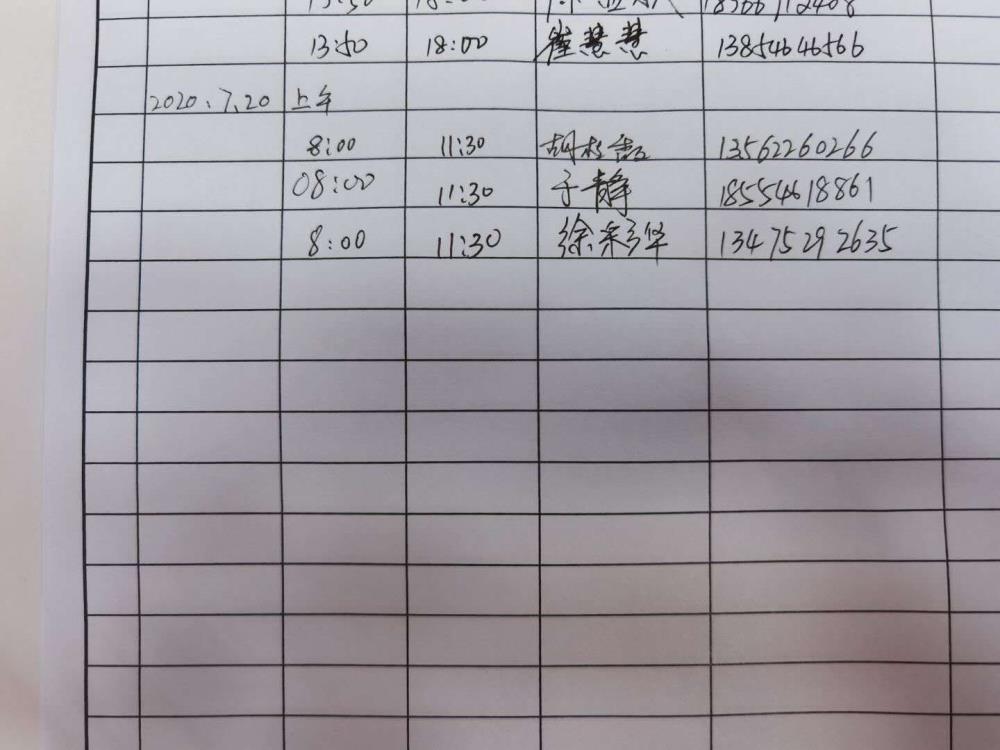 13:50 18:00 崔慧慧 13854646566
2020、7、20 上午
8:00 11:30 胡 13562260266
08:00 11:30 于静 18554618861
8:00 11:30 徐彩华 13475292635